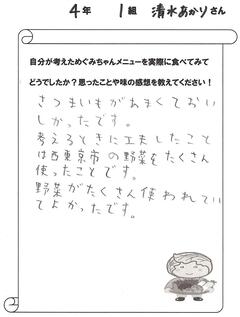 4年 1組 清水あかりさん
自分が考えためぐみちゃんメニューを実際に食べてみて
どうでしたか？思ったことや味の感想を教えてください！
さつまいもがあまくておい
しかったです。
考えるときに工夫したこと
は西東京市の野菜をたくさん
使ったことです。
野菜がたくさん使われてい
てよかったです。